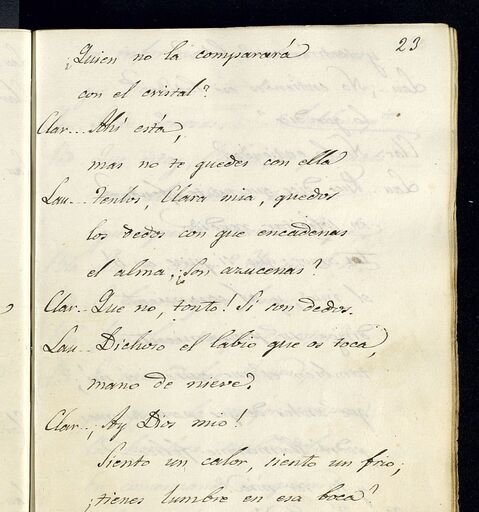 23
¿Quien no la comparará
con el cristal?
Clar.. Ahí está,
mas no te quedes con ella
Lau.. Tenlos, Clara mia, quedos
los dedos con que encadenas
el alma. ¿Son azucenas?
Clar.. Que no, tonto! Si son dedos.
Lau.. Dichoso el labio que os toca,
mano de nieve.
Clar.. ¡Ay Dios mio!
Siento un calor, siento un frio;
¿tienes lumbre en esa boca?